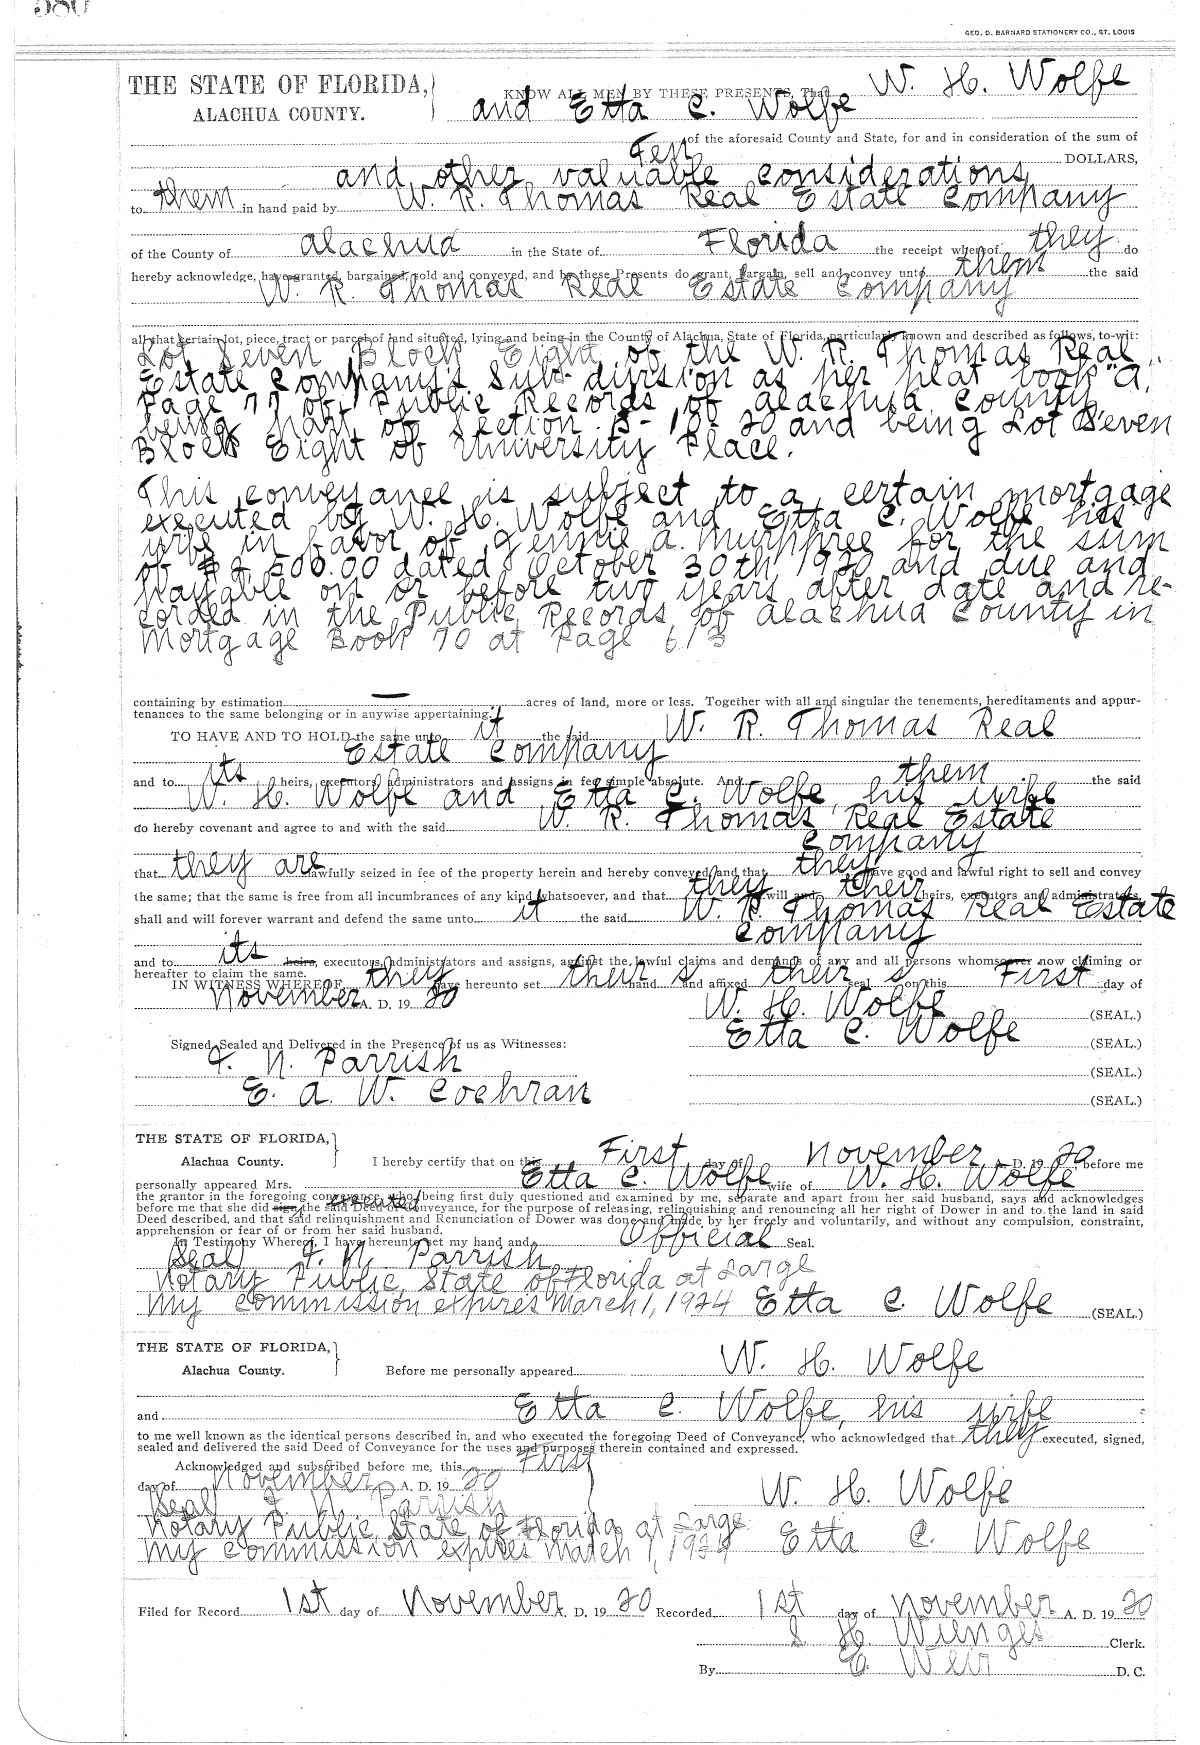 580
GEO. D. BARNARD STATIONERY CO., ST. LOUIS
THE STATE OF FLORIDA,
ALACHUA COUNTY.
KNOW ALL MEN BY THESE PRESENTS, That W. H. Wolfe
and Etta C. Wolfe
of the aforesaid County and State, for and in consideration of the sum of
Ten DOLLARS,
and other valuable considerations
to them in hand paid by W. R. Thomas Real Estate Company
of the County of Alachua in the State of Florida the receipt whereof they do
hereby acknowledge, have granted, bargained, sold and conveyed, and by these Presents do grant, bargain, sell and convey unto them the said
W. R. Thomas Real Estate Company
all that certain lot, piece, tract or parcel of land situated, lying and being in the County of Alachua, State of Florida, particularly known and described as follows, to-wit:
Lot Seven Block Eight of the W. R. Thomas Real
Estate Company's Sub-division as per plat book "A",
Page 77 of Public Records of Alachua County,
being part of Section 20 and being Lot Seven
Block Eight of University Place.
This conveyance is subject to a certain mortgage
executed by W. H. Wolfe and Etta C. Wolfe his
wife in favor of Jennie A. Murphree for the sum
of 500.00 dated October 30th 1920 and due and
payable on or before two years after date and re-
corded in the Public Records of Alachua County in
Mortgage Book 70 at Page 613
containing by estimation — acres of land, more or less. Together with all and singular the tenements, hereditaments and appur-
tenances to the same belonging or in anywise appertaining:
TO HAVE AND TO HOLD the same unto it the said W. R. Thomas Real
Estate Company
and to its heirs, executors, administrators and assigns in fee simple absolute. And them the said
W. H. Wolfe and Etta C. Wolfe, his wife
do hereby covenant and agree to and with the said W. R. Thomas Real Estate
Company
that they are lawfully seized in fee of the property herein and hereby conveyed, and that they have good and lawful right to sell and convey
the same; that the same is free from all incumbrances of any kind whatsoever, and that they will and their heirs, executors and administrators,
shall and will forever warrant and defend the same unto it the said W. R. Thomas Real Estate
Company
and to its heirs, executors, administrators and assigns, against the lawful claims and demands of any and all persons whomsoever now claiming or
hereafter to claim the same.
IN WITNESS WHEREOF, they have hereunto set their hand s and affixed their seal s on this First day of
November A. D. 19 20
W. H. Wolfe (SEAL.)
Etta C. Wolfe (SEAL.)
Signed, Sealed and Delivered in the Presence of us as Witnesses:
N. Parrish (SEAL.)
E. A. W. Cochran (SEAL.)
THE STATE OF FLORIDA,
Alachua County.
I hereby certify that on this First day of November A. D. 19 20 before me
personally appeared Mrs. Etta C. Wolfe wife of W. H. Wolfe
the grantor in the foregoing conveyance, who being first duly questioned and examined by me, separate and apart from her said husband, says and acknowledges
before me that she did sign executed the said Deed of Conveyance, for the purpose of releasing, relinquishing and renouncing all her right of Dower in and to the land in said
Deed described, and that said relinquishment and Renunciation of Dower was done and made by her freely and voluntarily, and without any compulsion, constraint,
apprehension or fear of or from her said husband.
In Testimony Whereof, I have hereunto set my hand and Official Seal.
Seal N. Parrish
Notary Public, State of Florida at Large
My commission expires March 1, 1924 Etta C. Wolfe (SEAL.)
THE STATE OF FLORIDA,
Alachua County.
Before me personally appeared W. H. Wolfe
and Etta C. Wolfe, his wife
to me well known as the identical persons described in, and who executed the foregoing Deed of Conveyance, who acknowledged that they executed, signed,
sealed and delivered the said Deed of Conveyance for the uses and purposes therein contained and expressed.
Acknowledged and subscribed before me, this First
day of November A. D. 19 20
W. H. Wolfe
Seal N. Parrish
Notary Public State of Florida at Large
Etta C. Wolfe
My commission expires March 1, 1924
Filed for Record 1st day of November A. D. 19 20 Recorded 1st day of November A. D. 19 20
S H. Wienges Clerk.
By E Weir D. C.